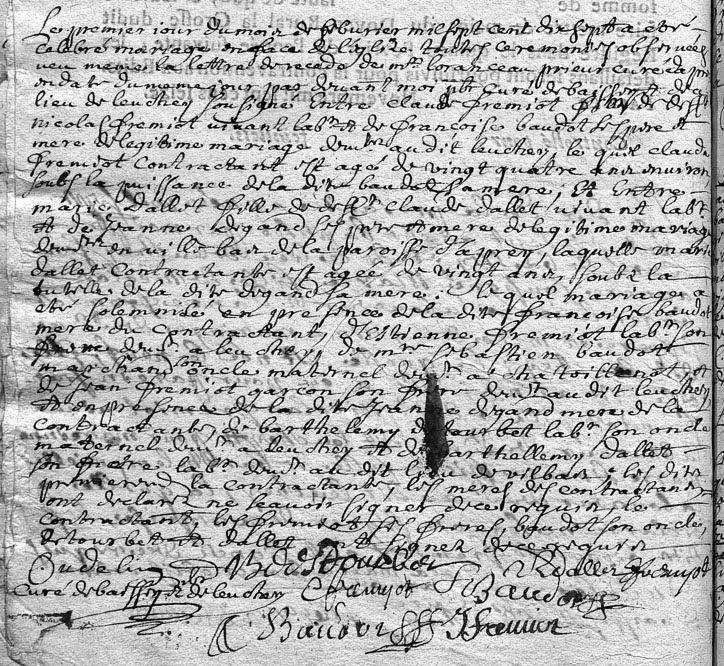 Le premier jour du mois de feburier mil sept cent dix sept a eté
celebré mariage en face de l'eglise toutes ceremonies observeez
veu meme la lettre de recede de mre loranceau prieur curé d'aprey
en date du meme jour par devant moi pbre Curé de baissey et de
lieu de leuchey soussigné Entre claude premiot fils de deff
nicolas premiot vivant labr et de francoise baudot ses pere et
mere de legitime mariage demt au dit leuchey le quel claude
premiot contractant est agé de vingt quatre ans environ
soubs la puissance de la dite baudot sa mere, Et Entre
marie dallet fille de defft claude dallet vivant labr
et de Jeanne degand ses pere et mere de legitime mariage
demt en ville bas de la paroisse d'aprey, laquelle marie
dallet contractante est agee de vingt ans soubs la
tutelle de la dite degand sa mere: lequel mariage a
eté solemnisé en presence de la dite francoise baudot
mere du contractant, d'Estienne premiot labr son
frere demt a leuchey, de mre sebastien baudot
marchand oncle maternel demt a chatoillenot, et
de Jean premiot garcon son frere demt au dit leuchey
et en presence de la dite Jeanne degand mere de la
contractante, de barthelemy detourbet labr son oncle
maternel demt a leuchey et de barthellemy dallet
son frere labr demt au dit lieu de vilbas: les dits
la contractante, les meres des contractans
ont declaré ne scavoir signer de ce requis, le
contractant, les premiot ses freres, baudot son oncle,
detourbet et dallet ont signez de ce requis
Oudelin B detourbet B dallet premiot
curé de baissey et de leuchey C premiot S Baudot
Baudot J premiot